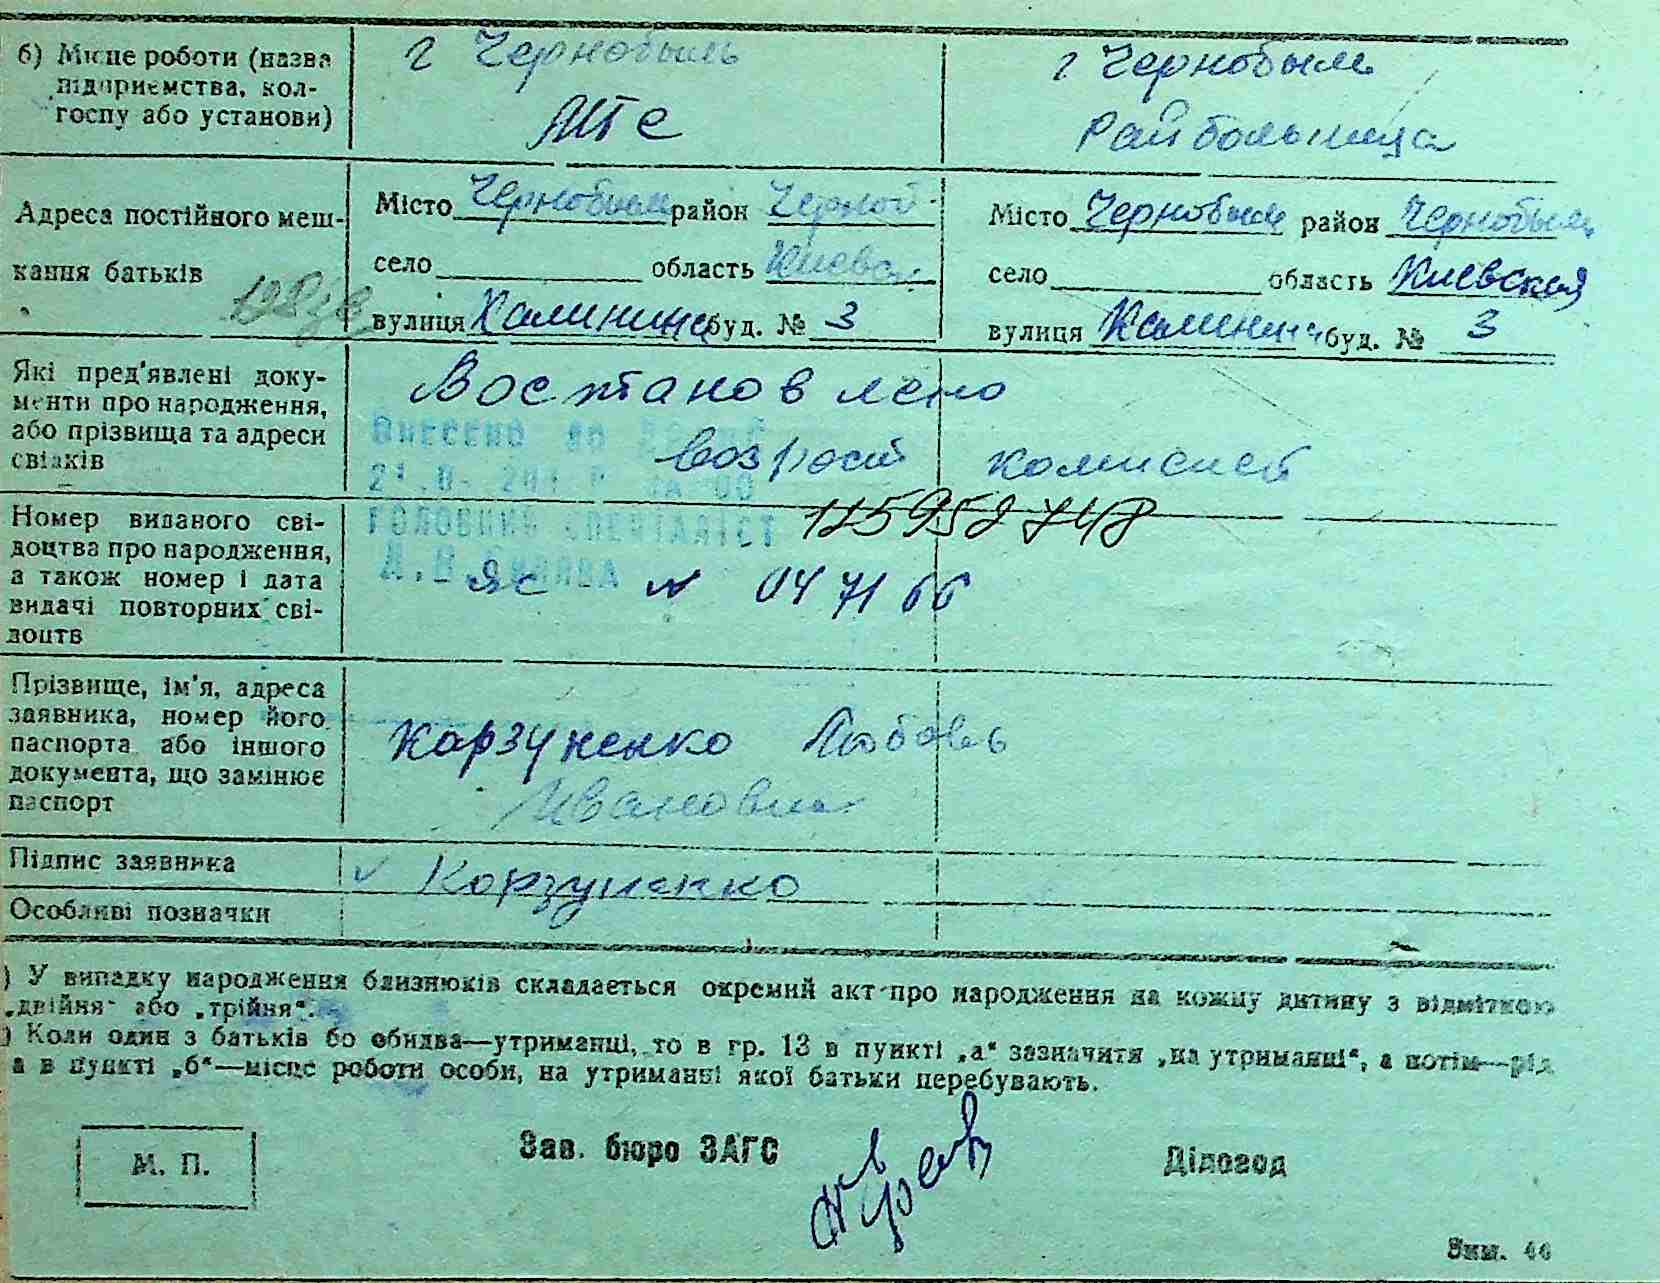 б) Місце роботи (назва
підприємства, кол-
госпу або установи)
г Чернобыль
МТС
г Чернобыль
Райбольница
Адреса постійного меш-
кання батьків
Місто Чернобыль район Черноб.
село область Киевск
вулиця Калинина буд. № 3
Місто Чернобыль район Чернобыль
село область Киевская
вулиця Калинина буд. № 3
Які пред'явлені доку-
менти про народження,
або прізвища та адреси
свідків
Востановлено
возраст комисией
ВНЕСЕНО до
ГОЛОВНИЙ СПЕЦІАЛІСТ
Номер виданого сві-
доцтва про народження,
а також номер і дата
видачі повторних сві-
доцтв
125952748
ЯС № 047166
Прізвище, ім'я, адреса
заявника, номер його
паспорта або іншого
документа, що замінює
паспорт
Корзуненко Любовь
Ивановна
Підпис заявника
Корзуненко
Особливі позначки
) У випадку народження близнюків складається окремий акт про народження на кожну дитину з відміткою
„двійня“ або „трійня“.
) Коли один з батьків бо обидва—утриманці, то в гр. 13 в пункті „а“ зазначити „на утриманні“, а потім—рід
а в пункті „б“—місце роботи особи, на утриманні якої батьки перебувають.
М. П.
Зав. бюро ЗАГС
Діловод
Зам. 44